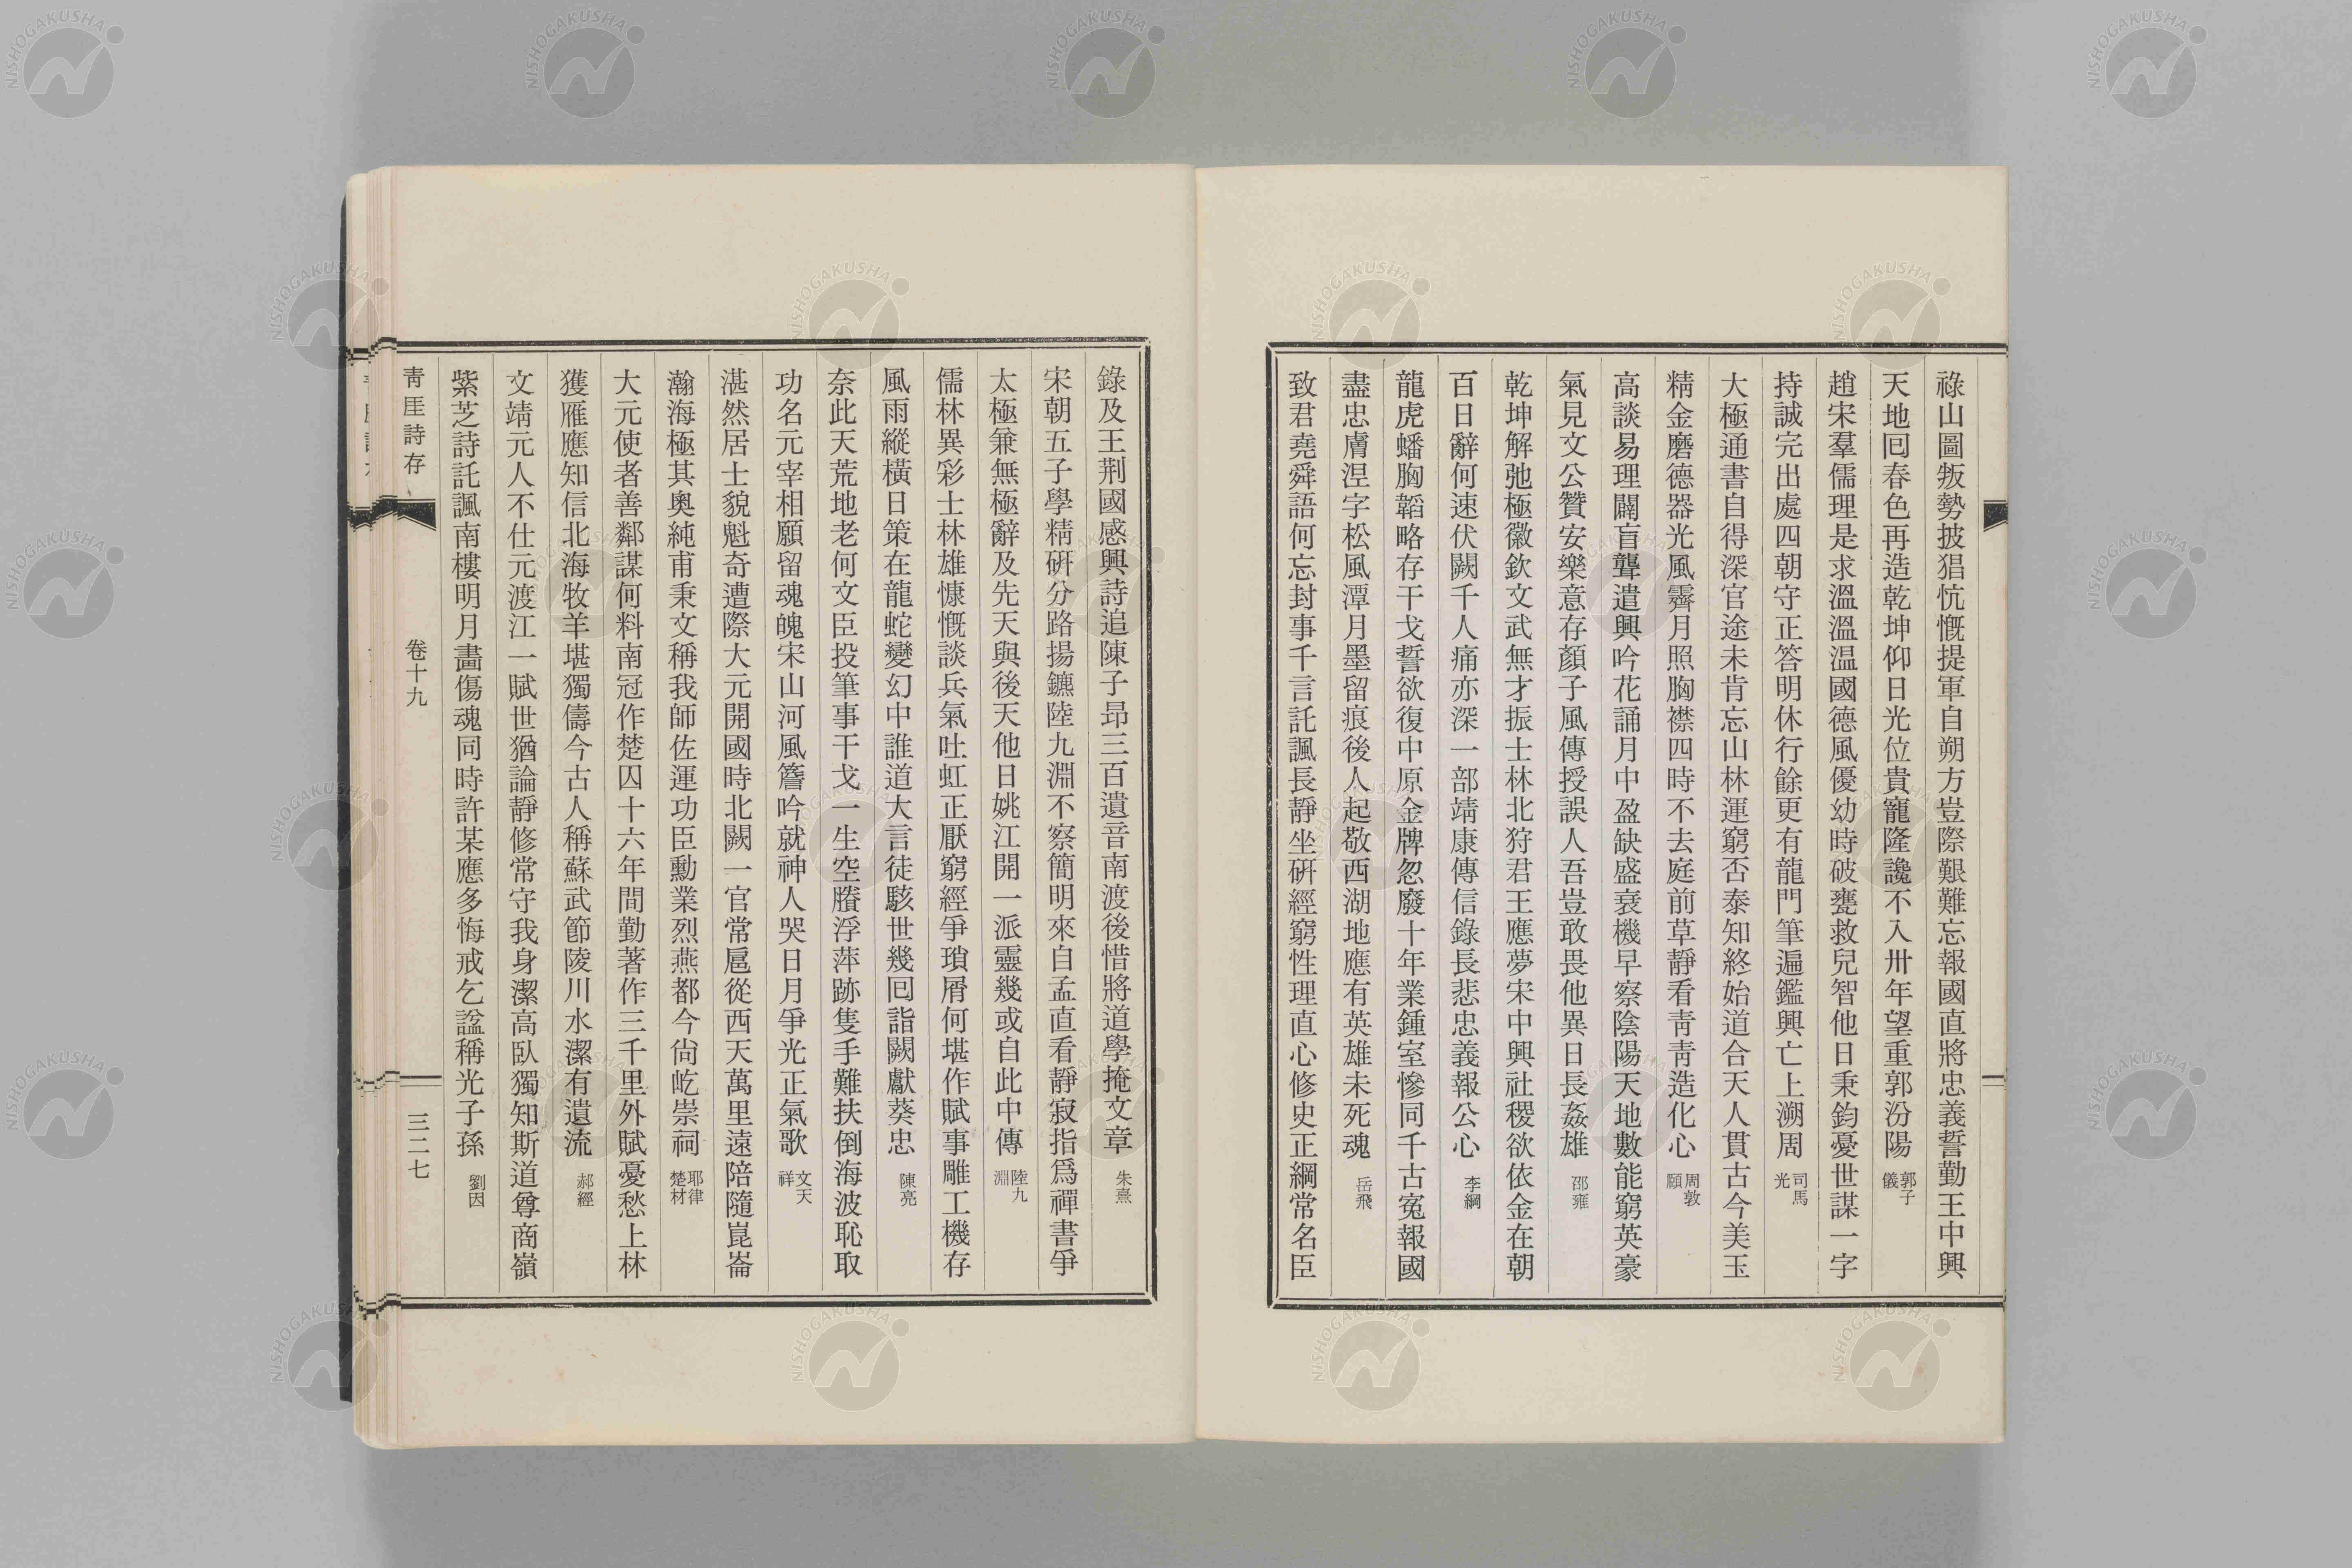 祿山圖叛勢披猖慷慨提軍自朔方豈際艱難忘報國直將忠義誓勤王中興
天地囘春色再造乾坤仰日光位貴寵隆讒不入卅年望重郭汾陽 郭子儀
趙宋羣儒理是求溫溫溫國德風優幼時破甕救兒智他日秉鈞憂世謀一字
持誠完出處四朝守正答明休行餘更有龍門筆遍鑑興亡上溯周 司馬光
大極通書自得深官途未肯忘山林運窮否泰知終始道合天人貫古今美玉
精金磨德器光風霽月照胸襟四時不去庭前草靜看靑靑造化心 周敦頤
高談易理闢盲聾遣興吟花誦月中盈缺盛衰機早察陰陽天地數能窮英豪
氣見文公贊安樂意存顏子風傳授誤人吾豈敢畏他異日長姦雄 邵雍
乾坤解弛極徽欽文武無才振士林北狩君王應夢宋中興社稷欲依金在朝
百日辭何速伏闕千人痛亦深一部靖康傳信錄長悲忠義報公心 李綱
龍虎蟠胸韜略存干戈誓欲復中原金牌忽廢十年業鍾室慘同千古寃報國
盡忠膚涅字松風潭月墨留痕後人起敬西湖地應有英雄未死魂 岳飛
致君堯舜語何忘封事千言託諷長靜坐硏經窮性理直心修史正綱常名臣
錄及王荆國感興詩追陳子昻三百遺音南渡後惜將道學掩文章 朱熹
宋朝五子學精硏分路揚鑣陸九淵不察簡明來自孟直看靜寂指爲禪書爭
太極兼無極辭及先天與後天他日姚江開一派靈幾或自此中傳 陸九淵
儒林異彩士林雄慷慨談兵氣吐虹正厭窮經爭瑣屑何堪作賦事雕工機存
風雨縱橫日策在龍蛇變幻中誰道大言徒駭世幾囘詣闕獻葵忠 陳亮
奈此天荒地老何文臣投筆事干戈一生空賸浮萍跡隻手難扶倒海波恥取
功名元宰相願留魂魄宋山河風簷吟就神人哭日月爭光正氣歌 文天祥
湛然居士貌魁奇遭際大元開國時北闕一官常扈從西天萬里遠陪隨崑崙
瀚海極其奧純甫秉文稱我師佐運功臣勳業烈燕都今尙屹崇祠 耶律楚材
大元使者善鄰謀何料南冠作楚囚十六年間勤著作三千里外賦憂愁上林
獲雁應知信北海牧羊堪獨儔今古人稱蘇武節陵川水潔有遺流 郝經
文靖元人不仕元渡江一賦世猶論靜修常守我身潔高臥獨知斯道尊商嶺
紫芝詩託諷南樓明月畵傷魂同時許某應多悔戒乞諡稱光子孫 劉因
靑厓詩存 卷十九 三二七